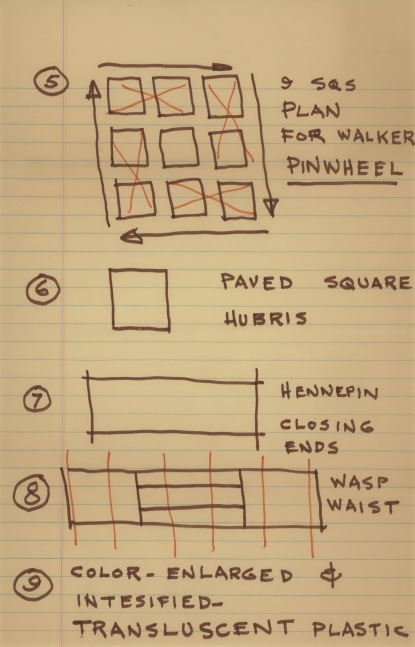 5 9 SQS
PLAN
FOR WALKER
PINWHEEL
6 PAVED SQUARE
HUBRIS
7 HENNEPIN
CLOSING
ENDS
8 WASP
WAIST
9 COLOR-ENLARGED &
INTESIFIED-
TRANSLUSCENT PLASTIC